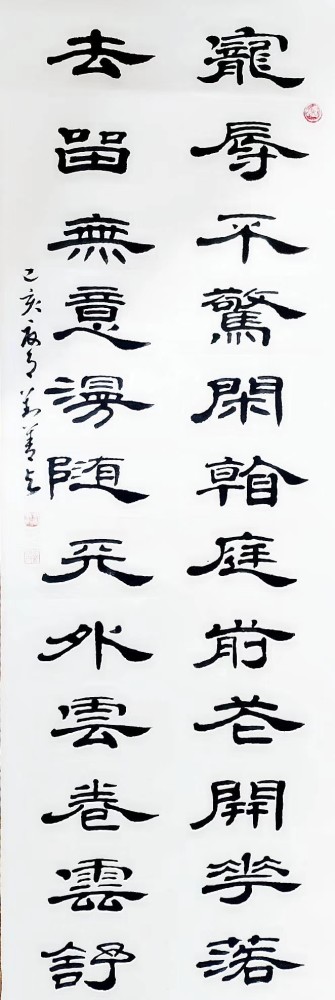 寵辱不驚閑看庭前花開花落
去留無意漫随天外雲卷雲舒
己亥